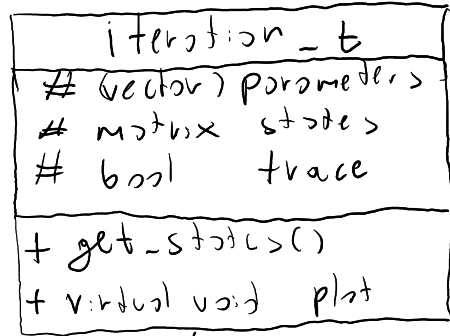 iteration_t
# (vector) parameters
# matrix states
# bool trace
+ get_states()
+ virtual void plot